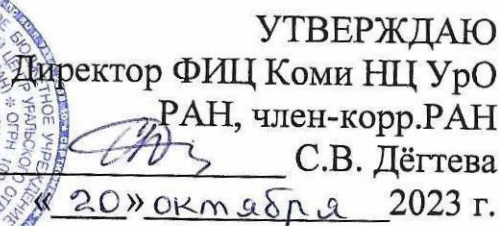 УТВЕРЖДАЮ
Директор ФИЦ Коми НЦ УрО
РАН, член-корр.РАН
С.В. Дёгтева
«20» октября 2023 г.